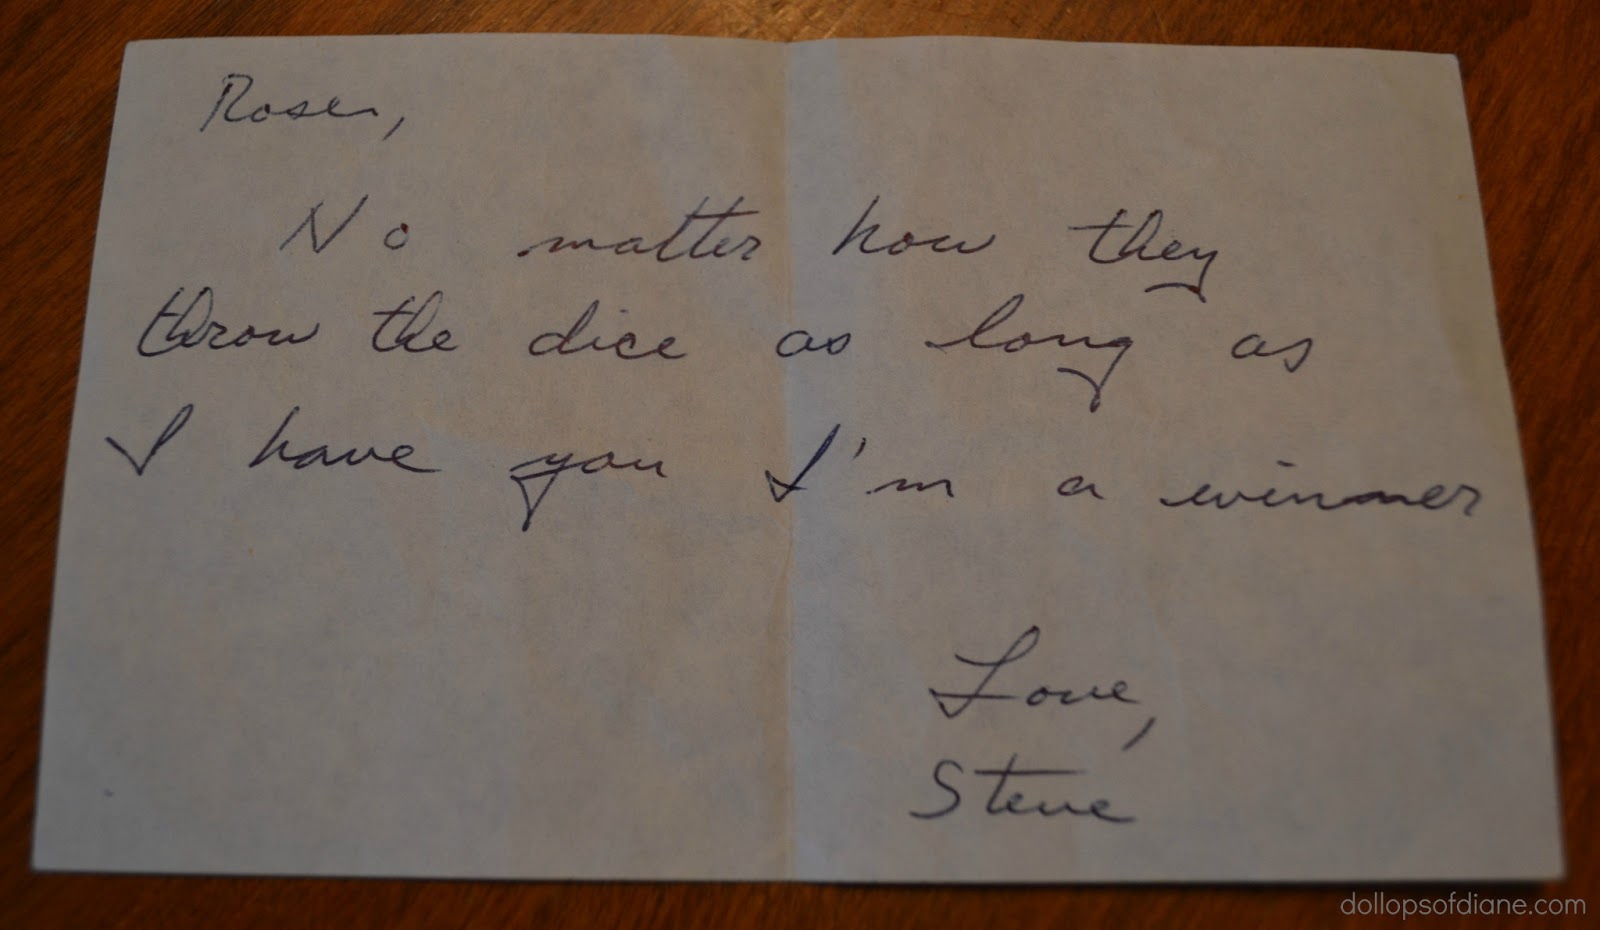 Rose,
No matter how they
throw the dice as long as
I have you I'm a winner
Love,
Steve
dollopsofdiane.com